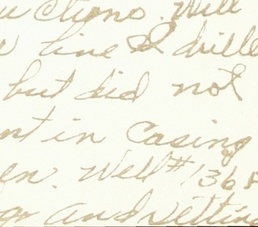 ctions. Well
line I drille
but did not
nt in Casing
en. Well # 1368
go and setting